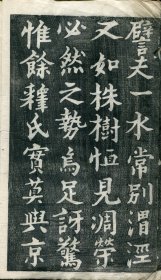 譬夫一水常別渭涇
又如株樹恒見凋榮
必然之勢烏足訝驚
惟餘釋氏寶莫與京